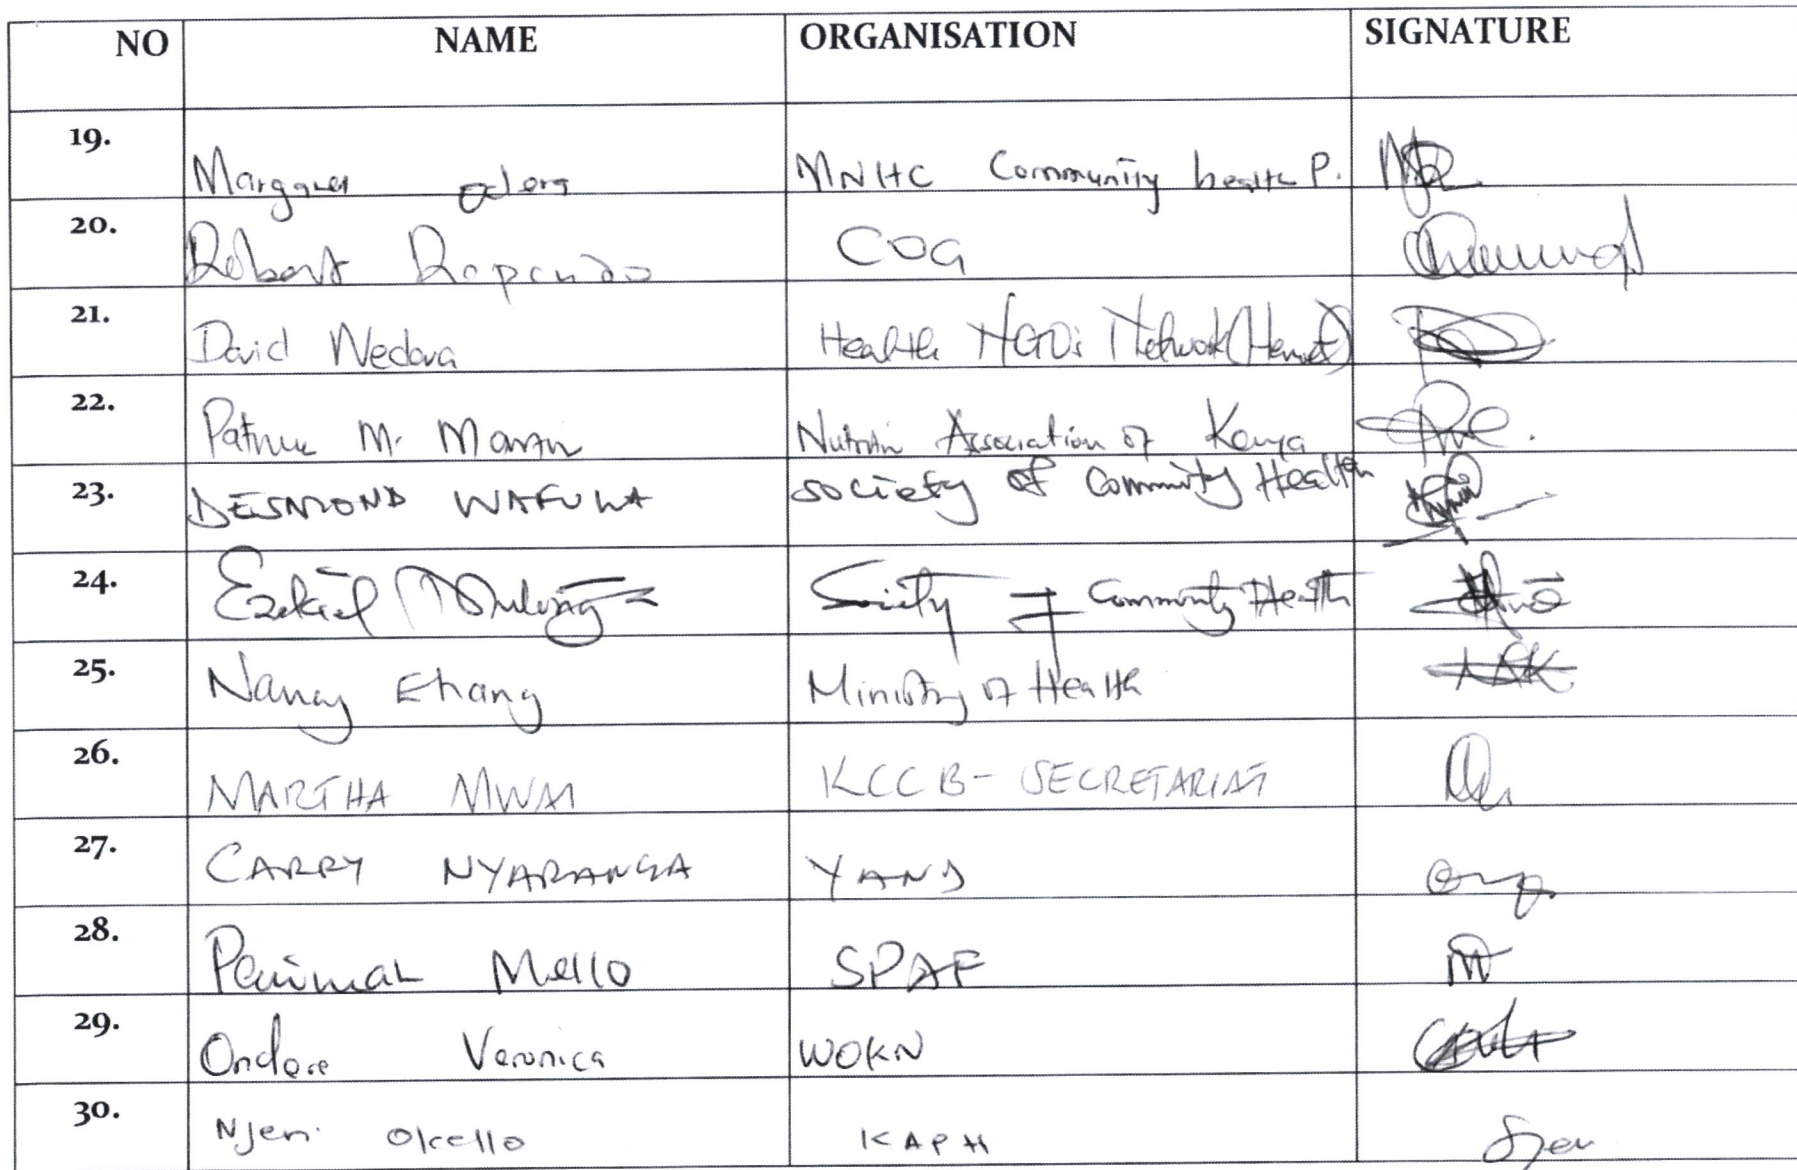 NO NAME ORGANISATION SIGNATURE
19. MNHC Community health P.
20. Robert Rapando COG
21. David Wedava Health NGO's Network (Hennet)
22. M. Association of Kenya
23. DESMOND WAFULA society of Community Health
24. Ezekiel Society of Community Health
25. Nancy Etyang Ministry of Health
26. MARTHA MWAI KCCB - SECRETARIAT
27. CARRY NYARANGA
28. Mello SPAF
29. Ondere Veronica WOKN
30. Njeri Okello KAPH